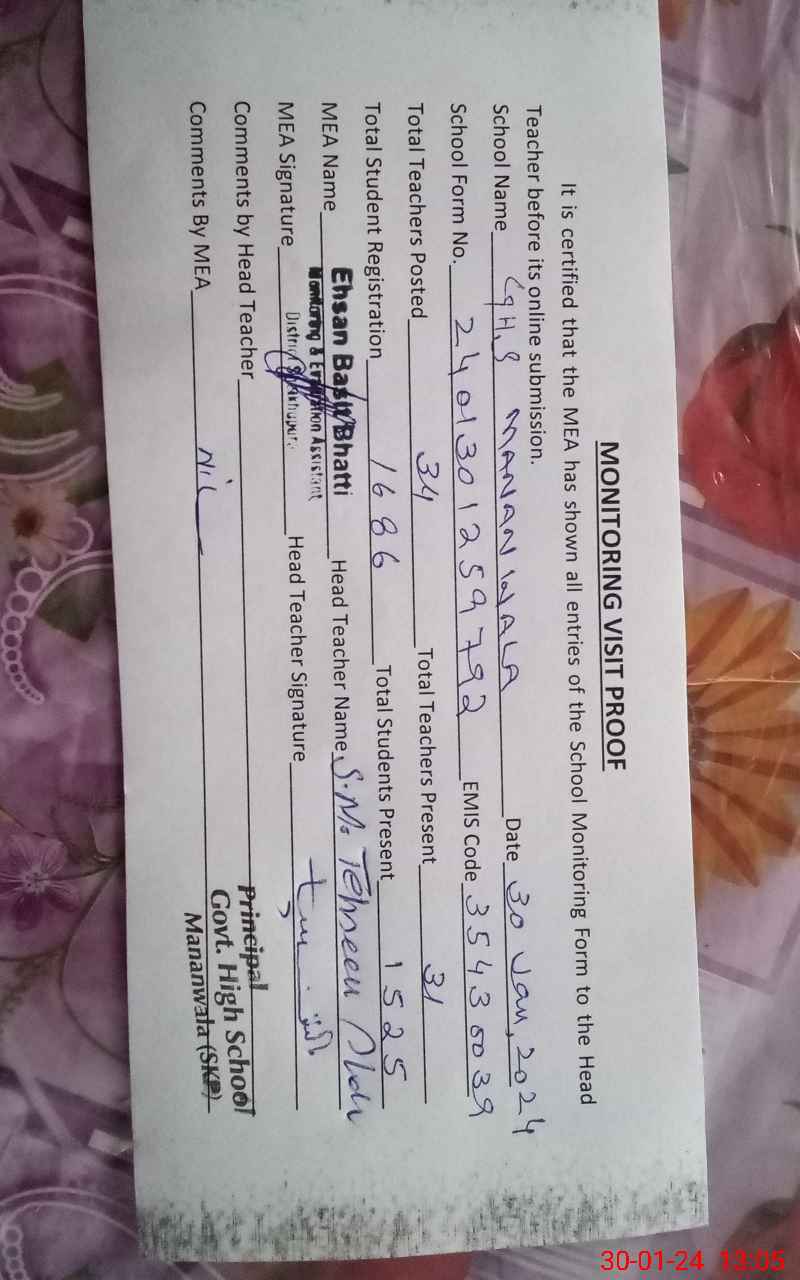 MONITORING VISIT PROOF
It is certified that the MEA has shown all entries of the School Monitoring Form to the Head
Teacher before its online submission.
School Name GHS MANANWALA Date 30 Jan, 2024
School Form No. 2401301259792 EMIS Code 35430039
Total Teachers Posted 34 Total Teachers Present 31
Total Student Registration 1686 Total Students Present 1525
MEA Name Ehsan Basit Bhatti Head Teacher Name S.M. Tehseen
Monitoring & Evaluation Assistant
MEA Signature District Sheikhupura Head Teacher Signature
Comments by Head Teacher Principal
Govt. High School
Comments By MEA Nil Mananwala (SKP)
30-01-24 13:05